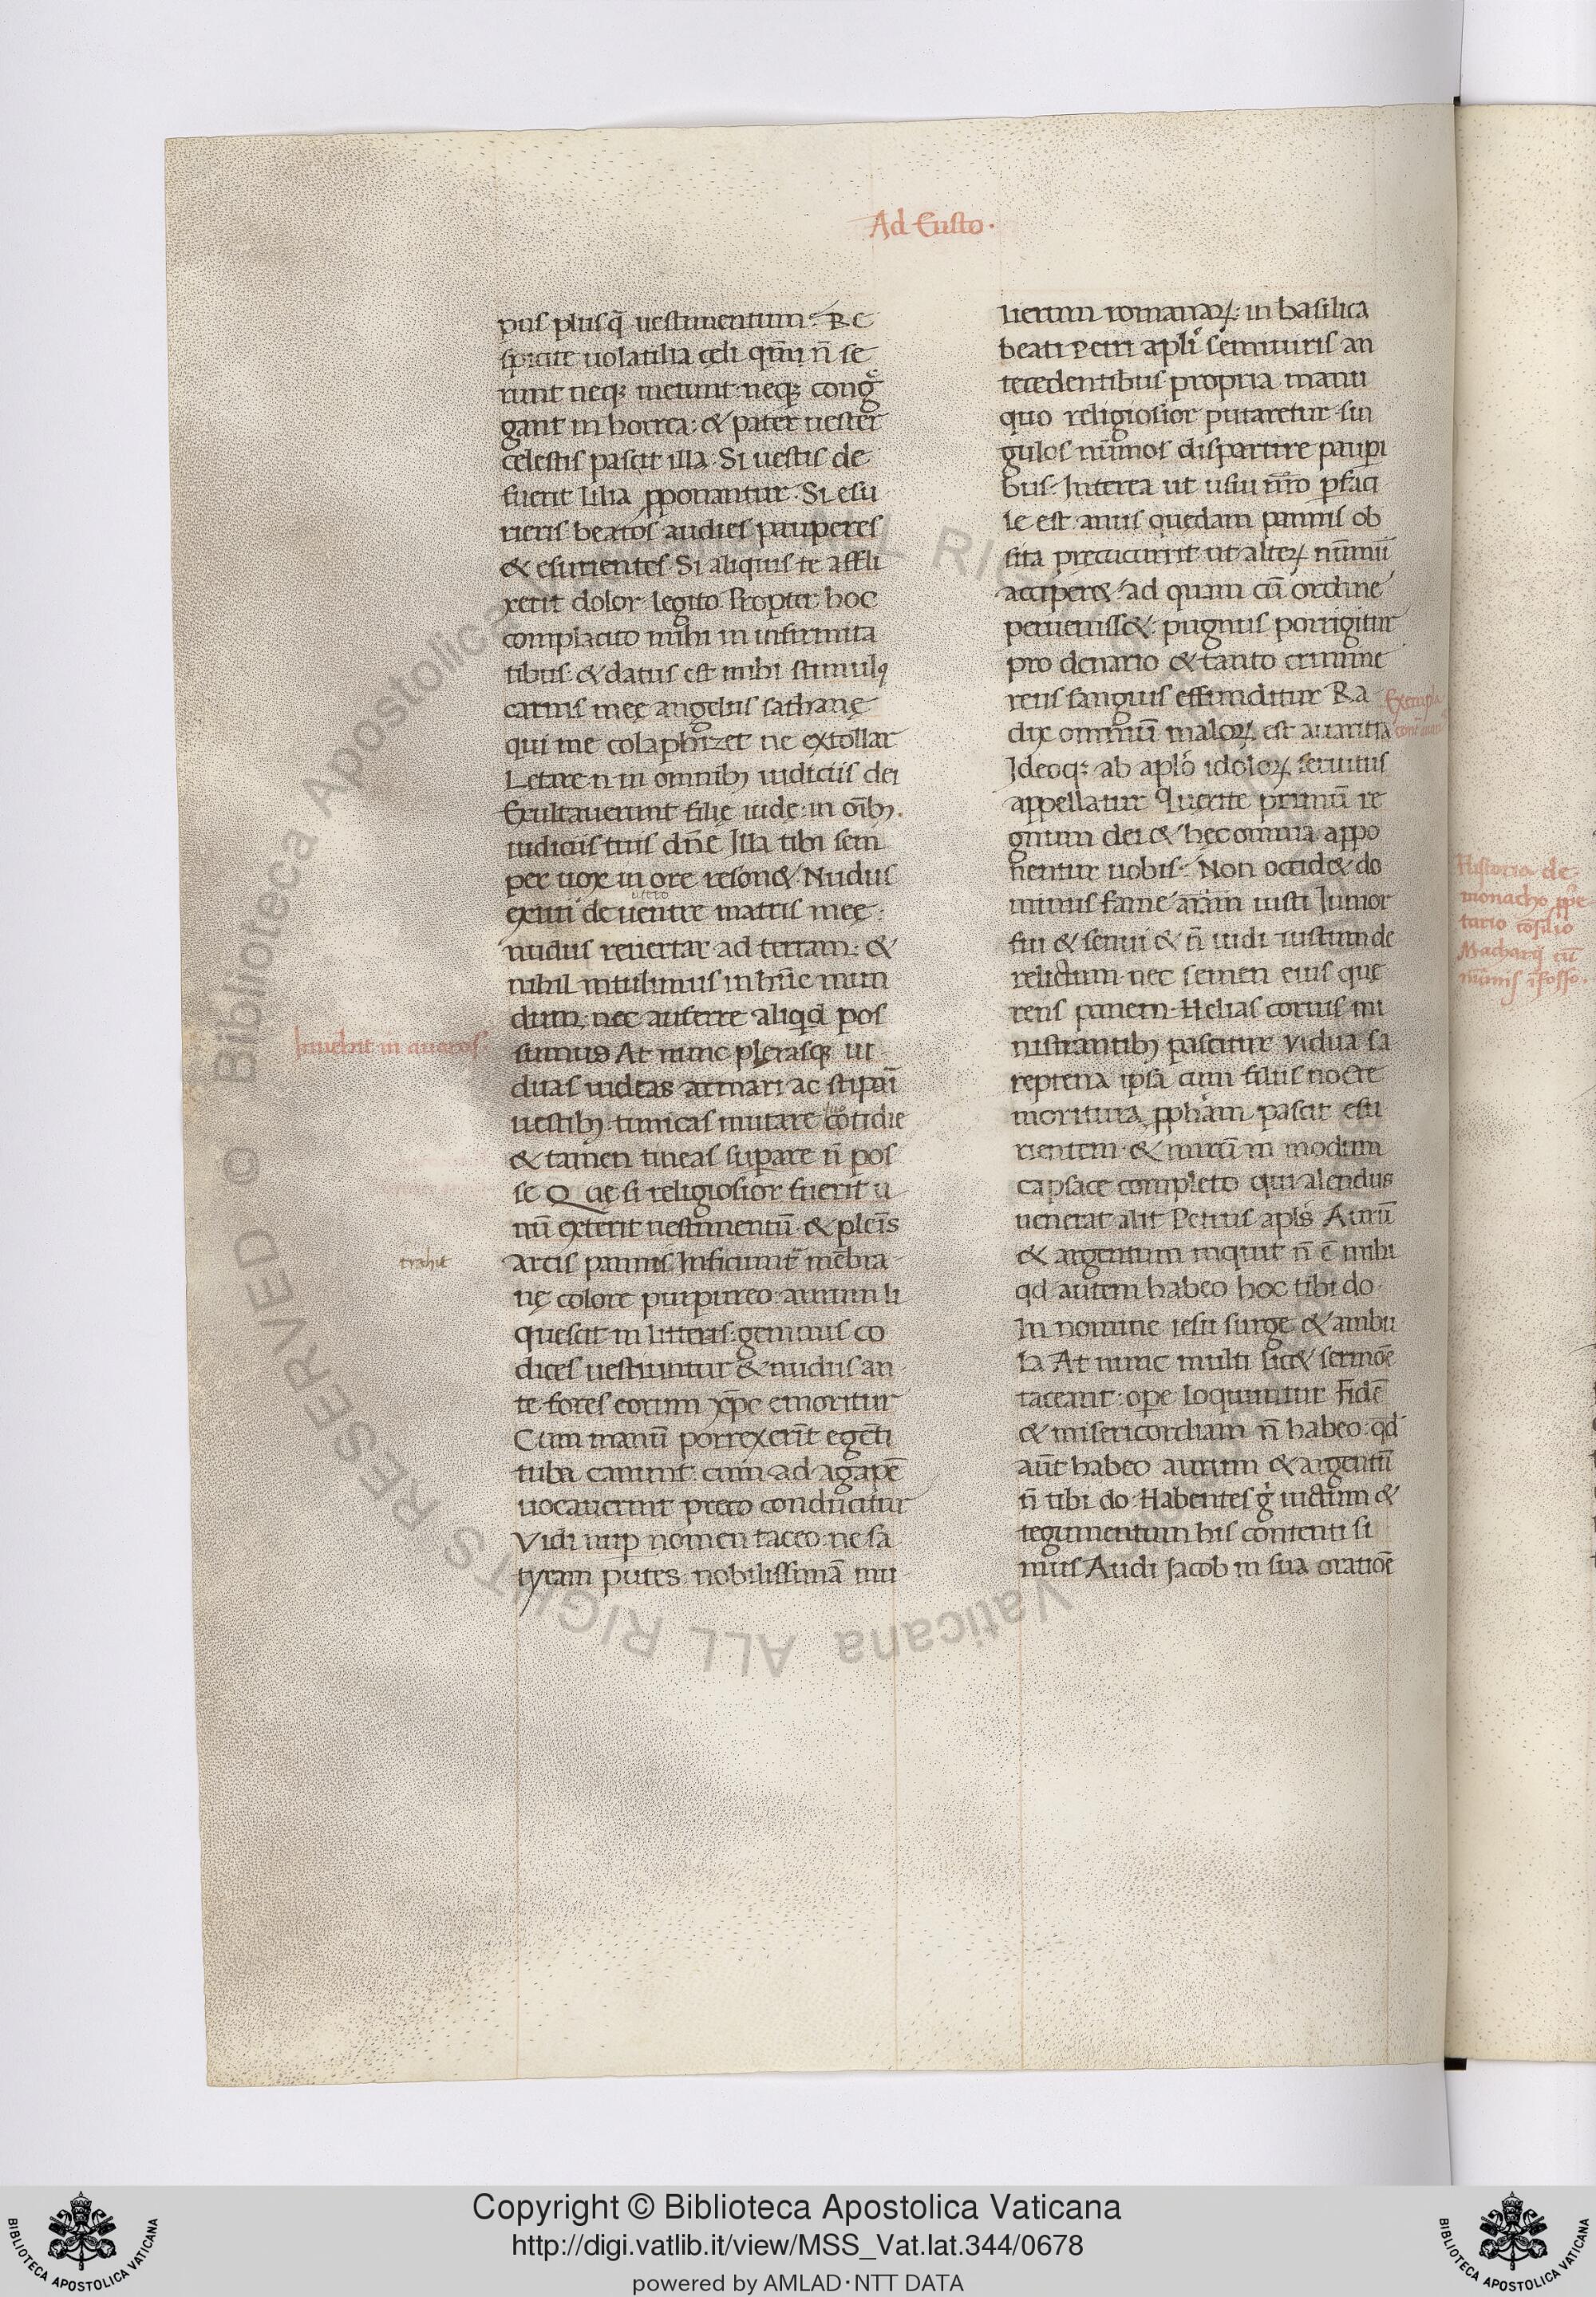 Ad Eusto·
pus plusq̄ uestimentum:· Re
spicite uolatilia celi qm̄ n̄ se
runt neq; metunt neq; cong̊
gant in horrea: & pater uester
celestis pascit illa· Si uestis de
fuerit lilia ꝓponantur· Si esu
rieris beatos audies pauperes
& esurientes Si aliquis te affli
xerit dolor legito Propter hoc
complaceo mihi in infirmita
tibus: & datus est mihi stimulꝰ
carnis meę angelus sathanę
qui me colaphizet ne extollar
Letare in omnibꝫ iudiciis dei
Exultauerunt filię iudę: in oībꝫ·
iudiciis tuis dn̄e Illa tibi sem
per uox in ore reson&· Nudus
exiui de uentre matris meę:
nudus reuertar ad terram: &
nihil intulimus in hūc mun
dum· nec auferre aliqd pos
sumus At nunc plerasq; ui
duas uideas armari ac stipari
uestibꝫ· tunicas mutare cotidie
& tamen tineas suꝑare n̄ pos
se Quę si religiosior fuerit u
nū exterit uestimentū & plenis
arcis pannis· Inficiunt᷑ mēbra
nę colore purpureo· aurum li
quescit in litteris· gemmis co
dices uestiuntur & nudus an
te fores eorum xp̄c emoritur
Cum manū porrexerīt egenti
tuba canunt· cum ad agapē
uocauerint preco conducitur
Vidi nuꝑ nomen taceo ne sa
tyram putes· nobilissimā mu
lierum romanaꝝ· in basilica
beati Petri apli semiuiris an
tecedentibus propria manu
quo religiosior putaretur sin
gulos nūmos dispartire pauꝑi
bus· Interea ut usu nr̄o ꝑfaci
le est anus quedam pannis ob
sita precucurrit ut alteꝝ nūmū
acciper& ad quam cū ordine
peruenisset& pugnus porrigitur
pro denario & tanto crimine
reus sanguis effunditur Ra
dix omniū maloꝝ est auaritia
Ideoq; ab aplo idoloꝝ seruitus
appellatur Querite primū re
gnum dei & hęc omnia appo
nentur uobis· Non occid& do
minus fame aīam iusti Iunior
fui & senui & n̄ uidi iustum de
relictum· nec semen eius que
rens panem· Helias coruis mi
nistrantibꝫ pascitur Vidua sa
reptena ipsa cum filiis nocte
moritura ꝓpham pascit esu
rientem· & mirū in modum
capsace completo qui alendus
uenerat alit Petrus apls Aurū
& argentum inquit n̄ ē mihi
qd autem habeo hoc tibi do·
In nomine iesu surge & ambu
la At nunc multi lic& sermōe
taceant· oꝑe loquuntur Fidē
& misericordiam n̄ habeo· qd
aut̄ habeo aurum & argentū
n̄ tibi do· Habentes g̊ uictum &
tegumentum his contenti si
mus Audi Iacob in sua oratiōe
Inuehit in auaros·
trahit
Historia de
monacho
tario cōsilio
Macharij cū
Copyright © Biblioteca Apostolica Vaticana
http://digi.vatlib.it/view/MSS_Vat.lat.344/0678
powered by AMLAD·NTT DATA
BIBLIOTECA APOSTOLICA VATICANA
BIBLIOTECA APOSTOLICA VATICANA